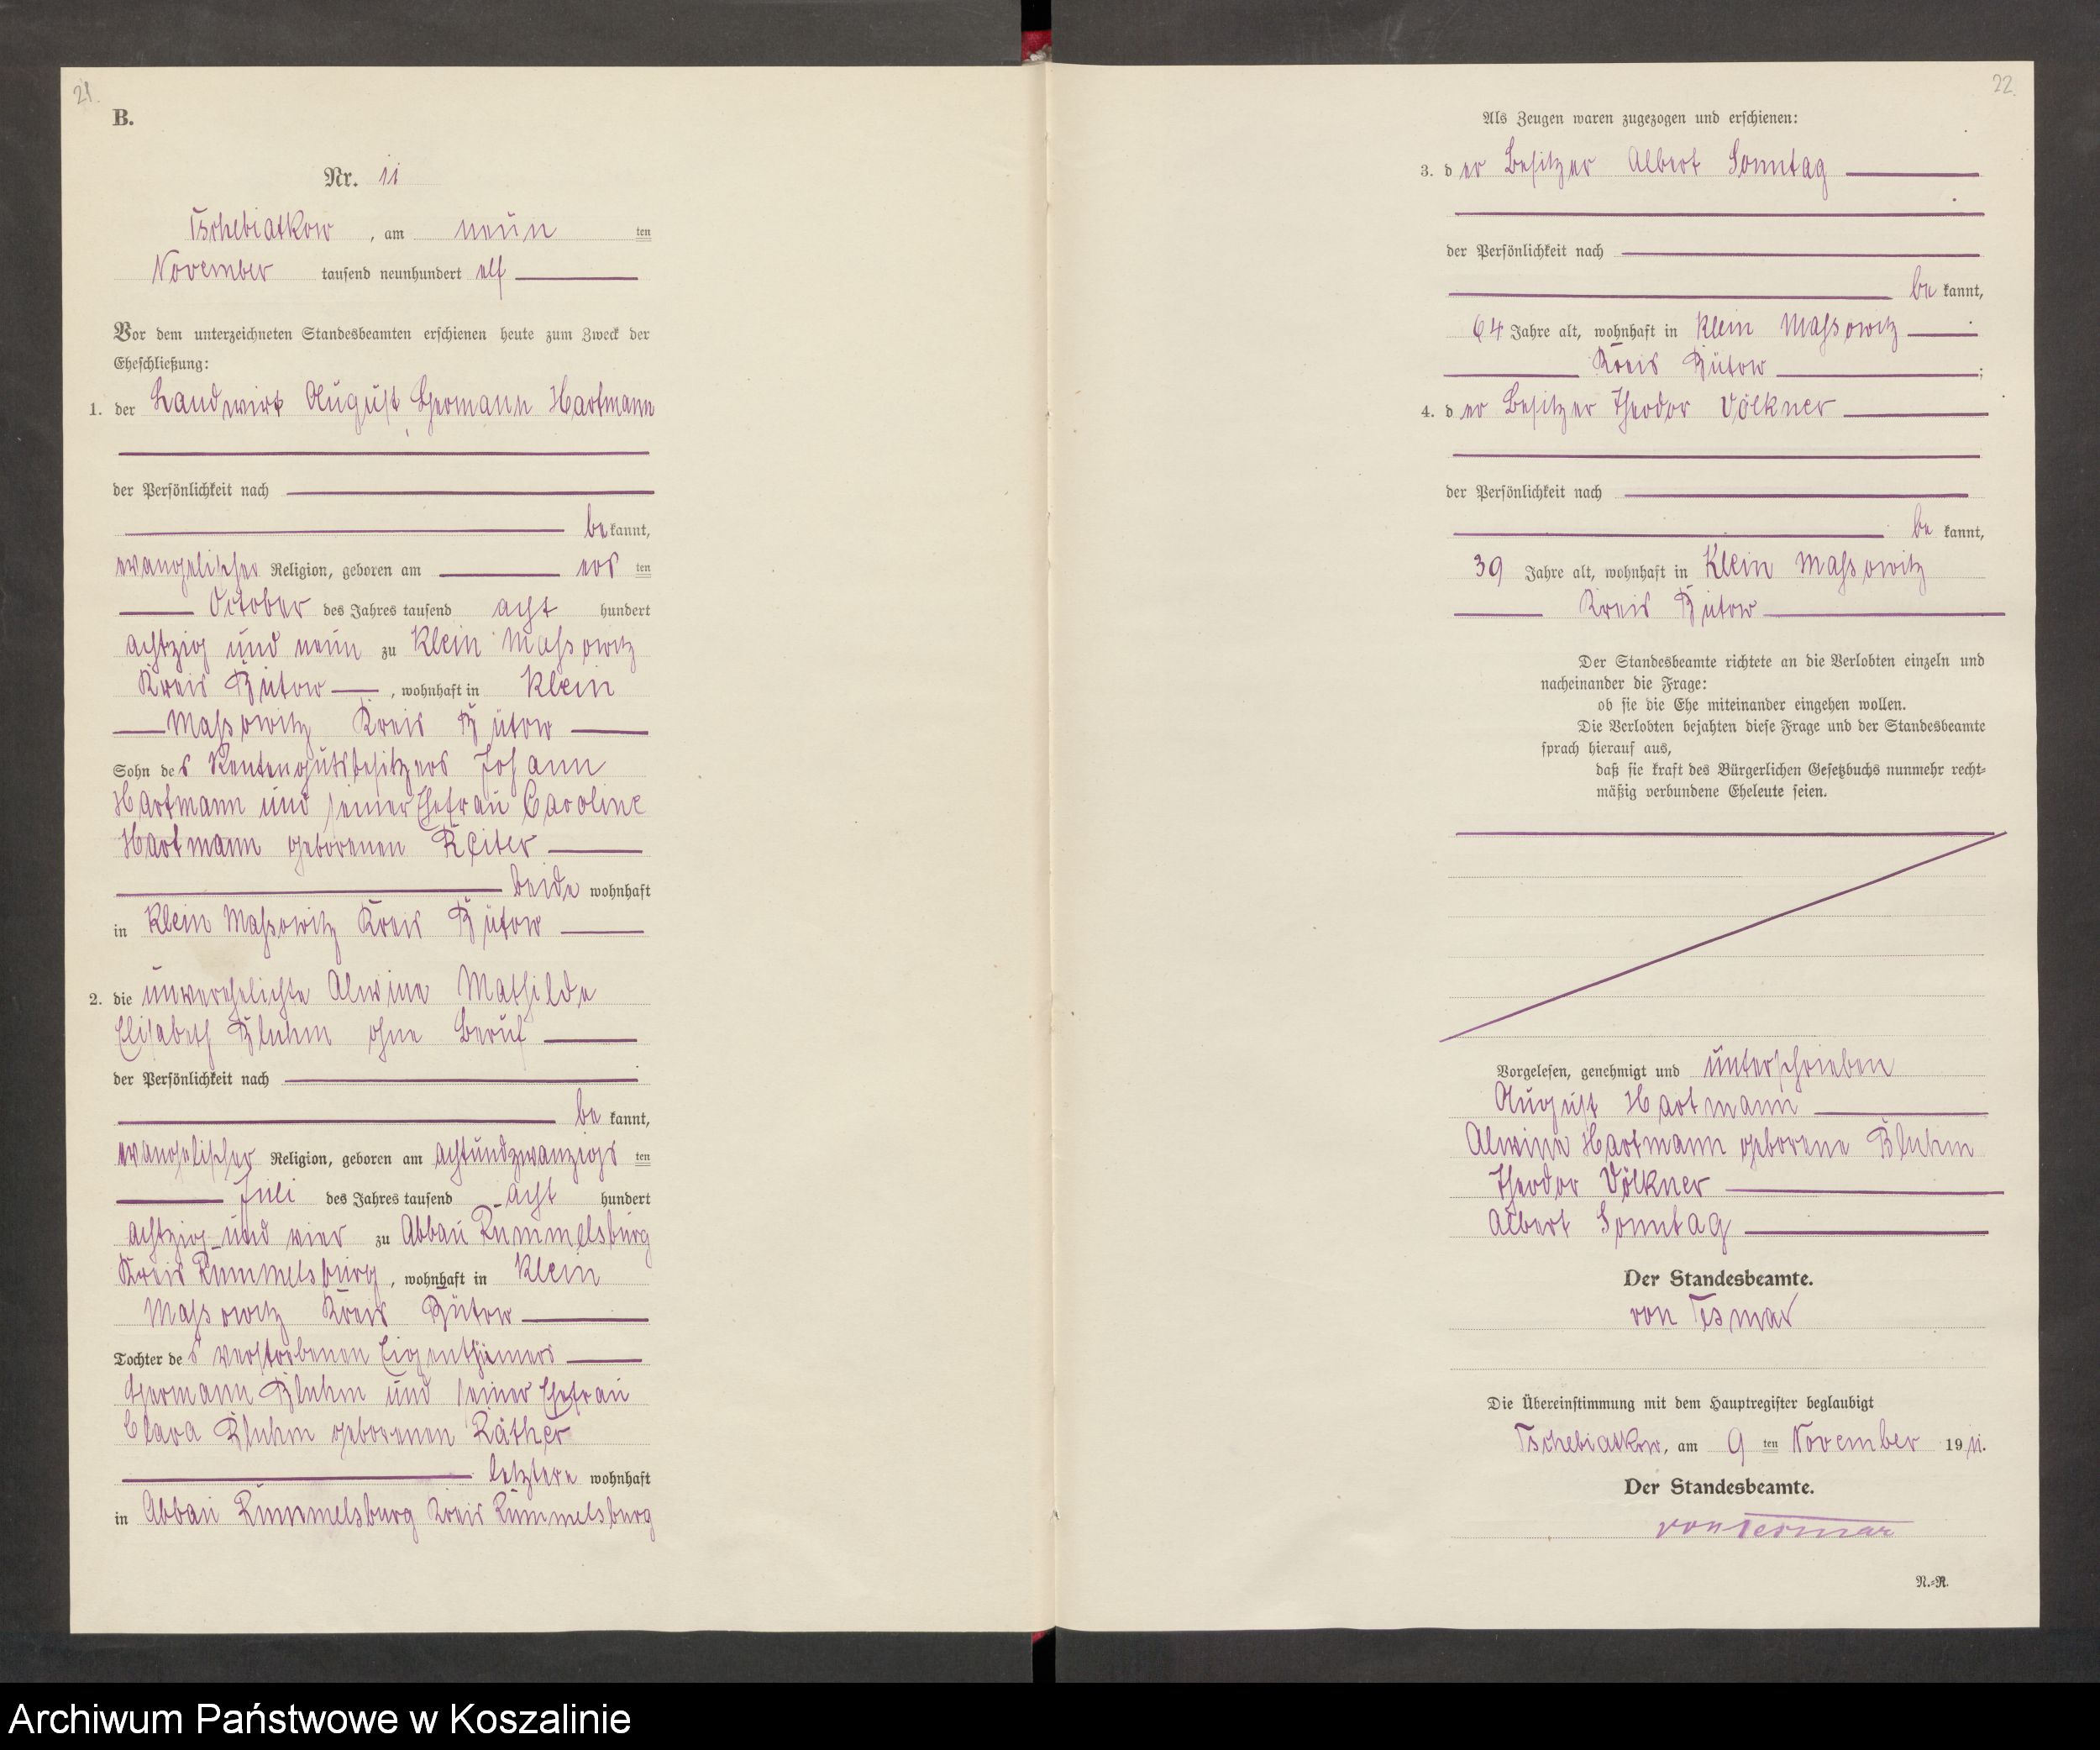 21.
B.
Nr. 11
Tschebiatkow, am neun ten
November tausend neunhundert elf
Vor dem unterzeichneten Standesbeamten erschienen heute zum Zweck der
Eheschließung:
1. der Landwirt August Hermann Hartmann
der Persönlichkeit nach
be kannt,
evangelischer Religion, geboren am ers ten
October des Jahres tausend acht hundert
achtzig und neun zu Klein Massowitz
Kreis Bütow, wohnhaft in Klein
Massowitz Kreis Bütow
Sohn des Rentengutsbesitzers Johann
Hartmann und seiner Ehefrau Caroline
Hartmann geborenen Reiter
beide wohnhaft
in Klein Massowitz Kreis Bütow
2. die unverehelichte Alwine Mathilde
Elisabeth Bluhm ohne Beruf
der Persönlichkeit nach
be kannt,
evangelischer Religion, geboren am achtundzwanzigs ten
Juli des Jahres tausend acht hundert
achtzig und vier zu Abbau Rummelsburg
Kreis Rummelsburg, wohnhaft in Klein
Massowitz Kreis Bütow
Tochter des verstorbenen Eigenthümers
Hermann Bluhm und seiner Ehefrau
Clara Bluhm geborenen Räther
letztere wohnhaft
in Abbau Rummelsburg Kreis Rummelsburg
22.
Als Zeugen waren zugezogen und erschienen:
3. der Besitzer Albert Sonntag
der Persönlichkeit nach
be kannt,
64 Jahre alt, wohnhaft in Klein Massowitz
Kreis Bütow;
4. der Besitzer Theodor Völkner
der Persönlichkeit nach
be kannt,
39 Jahre alt, wohnhaft in Klein Massowitz
Kreis Bütow
Der Standesbeamte richtete an die Verlobten einzeln und
nacheinander die Frage:
ob sie die Ehe miteinander eingehen wollen.
Die Verlobten bejahten diese Frage und der Standesbeamte
sprach hierauf aus,
daß sie kraft des Bürgerlichen Gesetzbuchs nunmehr recht-
mäßig verbundene Eheleute seien.
Vorgelesen, genehmigt und unterschrieben
August Hartmann
Alwine Hartmann geborene Bluhm
Theodor Völkner
Albert Sonntag
Der Standesbeamte.
von Tesmar
Die Übereinstimmung mit dem Hauptregister beglaubigt
Tschebiatkow, am 9 ten November 1911.
Der Standesbeamte.
von Tesmar
N.-R.
Archiwum Państwowe w Koszalinie